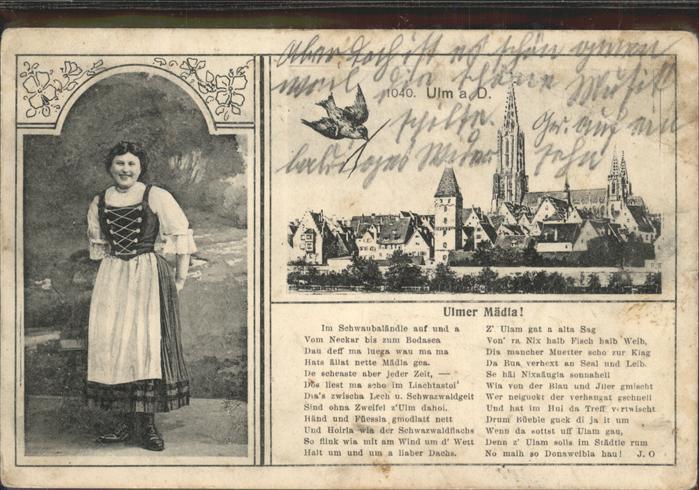 Aber doch ist es schön gewesen
weil die schöne Musik
1040. Ulm a. D.
spielte. Gr. auf ein
baldiges Wieder sehn
Ulmer Mädla!
Im Schwaubaländle auf und a
Vom Neckar bis zum Bodasea
Dau deff ma luega wau ma ma
Hats ällat nette Mädla gea.
De scheaste aber jeder Zeit, —
Dös liest ma scho im Liachtastoi'
Dia's zwischa Lech u. Schwazwaldgeit
Sind ohna Zweifel z'Ulm dahoi.
Händ und Füessla gmodlatt nett
Und Hoirla wia der Schwazwaldflachs
So flink wia mit am Wind um d' Wett
Halt um und um a liaber Dachs.
Z' Ulam gat a alta Sag
Von' ra Nix halb Fisch halb Weib,
Dia mancher Muetter scho zur Klag
Da Bua verhext an Seal und Leib.
Se häi Nixaäugla sonnaheil
Wia von der Blau und Jller gmischt
Wer neiguckt der verhangat gschnell
Und hat im Hui da Treff vertwischt
Drum Büeble guck di ja it um
Wenn da sottst uff Ulam gau,
Denn z' Ulam solls im Städtle rum
No maih so Donaweibla hau! J. O